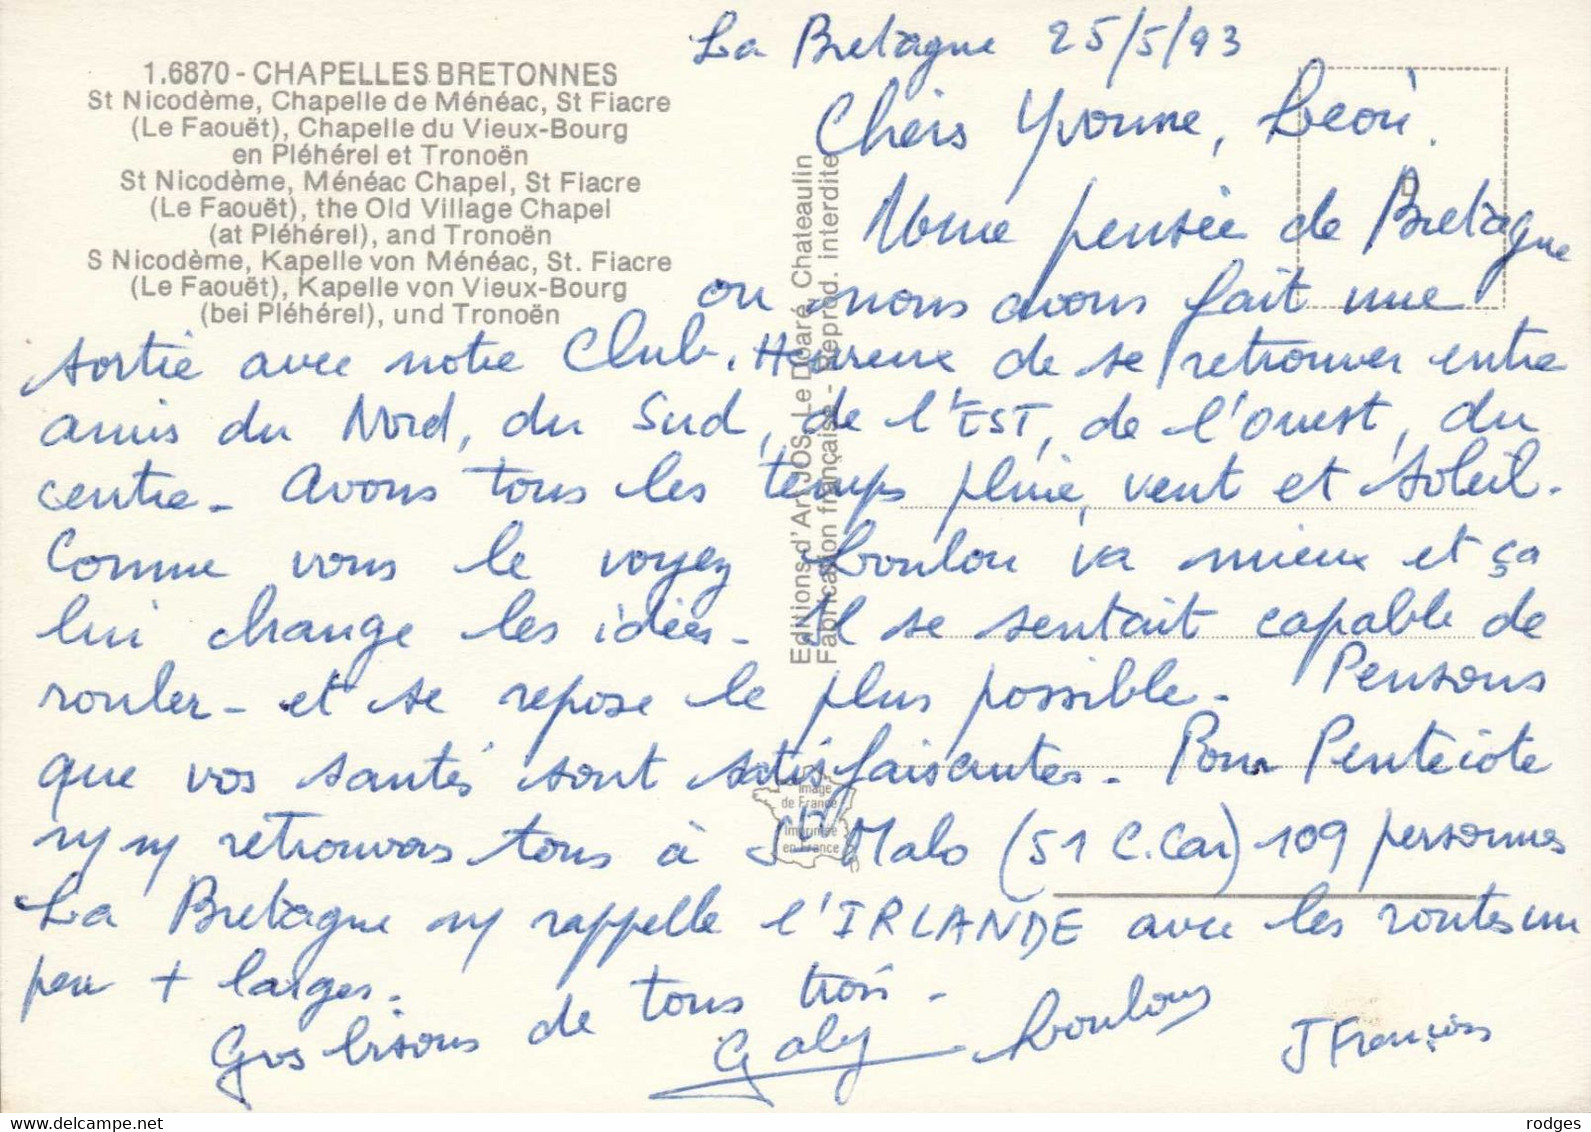 La Bretagne 25/5/93
1.6870 - CHAPELLES BRETONNES
St Nicodème, Chapelle de Ménéac, St Fiacre
(Le Faouët), Chapelle du Vieux-Bourg
en Pléhérel et Tronoën
St Nicodème, Ménéac Chapel, St Fiacre
(Le Faouët), the Old Village Chapel
(at Pléhérel), and Tronoën
S Nicodème, Kapelle von Ménéac, St. Fiacre
(Le Faouët), Kapelle von Vieux-Bourg
(bei Pléhérel), und Tronoën
Editions d'Art JOS Le Doaré, Chateaulin
Fabrication française - Reprod. interdite
Chers Yvonne, Léon.
Une pensée de Bretagne
ou nous avons fait une
sortie avec notre Club. Heureux de se retrouver entre
amis du Nord, du Sud, de l'EST, de l'ouest, du
centre - Avons tous les temps pluie, vent et soleil.
Comme vous le voyez Loulou va mieux et ça
lui change les idées - Il se sentait capable de
rouler - et se repose le plus possible - Pensons
que vos santés sont satisfaisantes - Pour Pentecôte
ns ns retrouvons tous à St Malo (51 C.Car) 109 personnes
La Bretagne ns rappelle l'IRLANDE avec les routes un
peu + larges.
Gros bisous de tous trois -
Galy Loulou J François
Image
de France
Imprimée
en France
delcampe.net
rodges